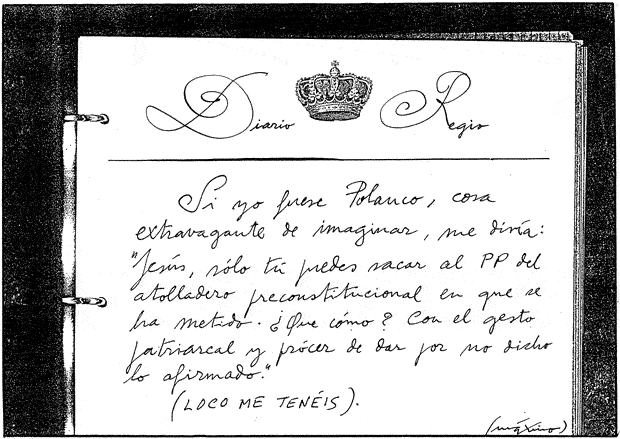 Diario Regio
Si yo fuese Polanco, cosa
extravagante de imaginar, me diría:
"Jesús, sólo tú puedes sacar al PP del
atolladero preconstitucional en que se
ha metido. ¿Que cómo? Con el gesto
patriarcal y prócer de dar por no dicho
lo afirmado."
(LOCO ME TENÉIS).
(máximo)